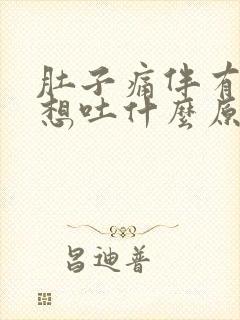 肚子痛伴有
想吐什麼原
昌迪普